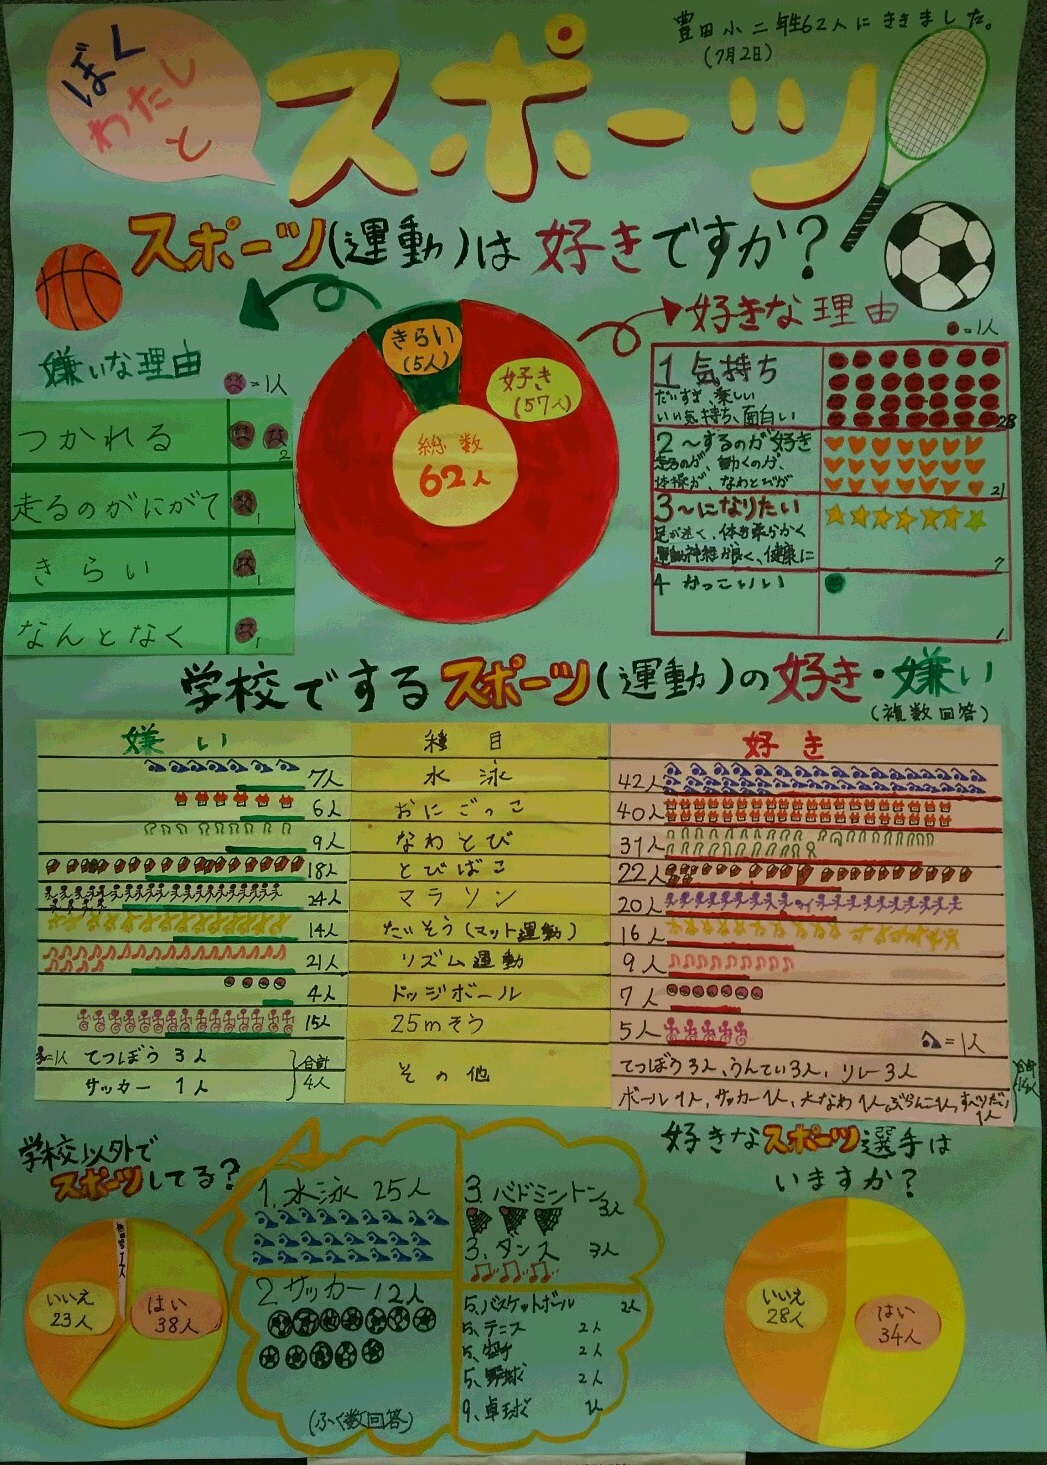 豊田小二年生62人にききました。
(7月2日)
ぼく
わたし
と
スポーツ
スポーツ(運動)は好きですか?
嫌いな理由
=1人
つかれる
2
走るのがにがて
1
きらい
1
なんとなく
1
きらい
(5人)
好き
(57人)
総数
62人
好きな理由
=1人
1 気持ち
だいすき、楽しい
いい気持ち、面白い
28
2 ~するのが好き
走るのが、動くのが、
体操が、なわとびが
21
3 ~になりたい
足が速く、体が柔らかく
運動神経が良く、健康に
7
4 かっこいい
1
学校でするスポーツ(運動)の好き・嫌い
(複数回答)
嫌い 種目 好き
7人 水泳 42人
6人 おにごっこ 40人
9人 なわとび 31人
18人 とびばこ 22人
24人 マラソン 20人
14人 たいそう(マット運動) 16人
21人 リズム運動 9人
4人 ドッジボール 7人
15人 25mそう 5人
=1人
=1人 てつぼう 3人
サッカー 1人
合計
4人
その他
てつぼう3人、うんてい3人、リレー3人
ボール1人、サッカー1人、大なわ1人、ぶらんこ1人、すべりだい
1人
合計
学校以外で
スポーツしてる?
いいえ
23人
はい
38人
1.水泳 25人
2.サッカー 12人
(ふく数回答)
3.バドミントン
3人
3.ダンス 3人
5.バスケットボール 2人
5.テニス 2人
5. 2人
5.野球 2人
9.卓球 1人
好きなスポーツ選手は
いますか?
いいえ
28人
はい
34人